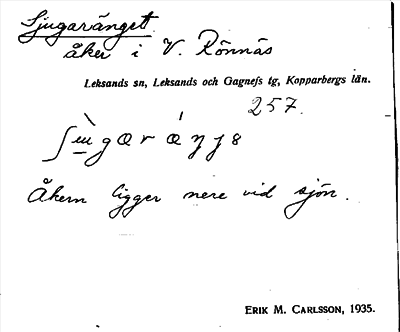 Ljugaränget
åker i V. Rönnäs
Leksands sn, Leksands och Gagnefs tg, Kopparbergs län.
257.
Åkern ligger nere vid sjön.
ERIK M. CARLSSON, 1935.